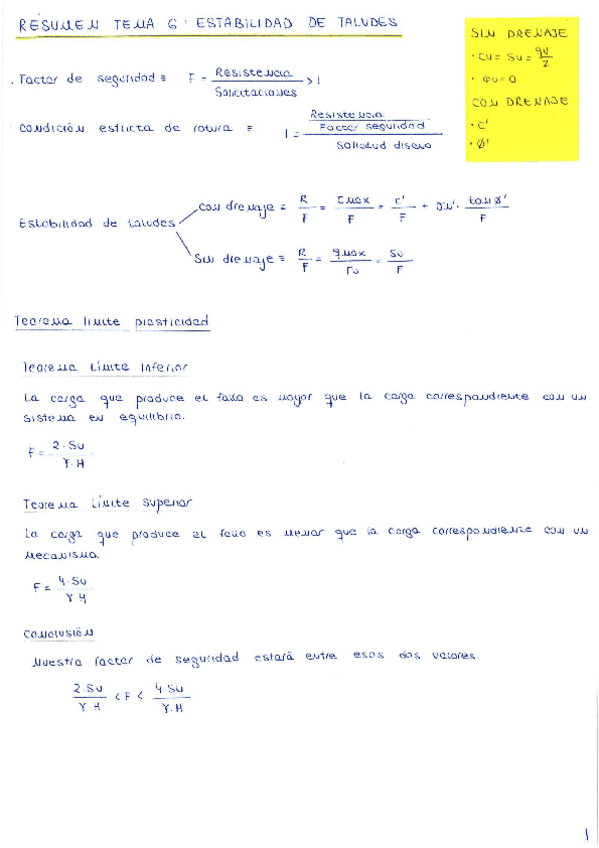 RESUMEN TEMA 6: ESTABILIDAD DE TALUDES
SIN DRENAJE
· Cu = Su = qu/2
· Φu = 0
CON DRENAJE
· C'
· Φ'
. Factor de seguridad ≡ F = Resistencia/Solicitaciones > 1
· Condición estricta de rotura ≡ 1 = (Resistencia/Factor seguridad)/Solicitud diseño
Estabilidad de taludes
Con drenaje ≡ R/F = τmax/F = c'/F + σn' · tan Φ'/F
Sin drenaje ≡ R/F = = Su/F
Teorema límite plasticidad
Teorema Límite Inferior
La carga que produce el fallo es mayor que la carga correspondiente con un
sistema en equilibrio.
F = 2·Su/γ·H
Teorema Límite Superior
La carga que produce el fallo es menor que la carga correspondiente con un
mecanismo.
F = 4·Su/γ·H
Conclusión
Nuestro factor de seguridad estará entre esos dos valores.
2·Su/γ·H < F < 4·Su/γ·H
1